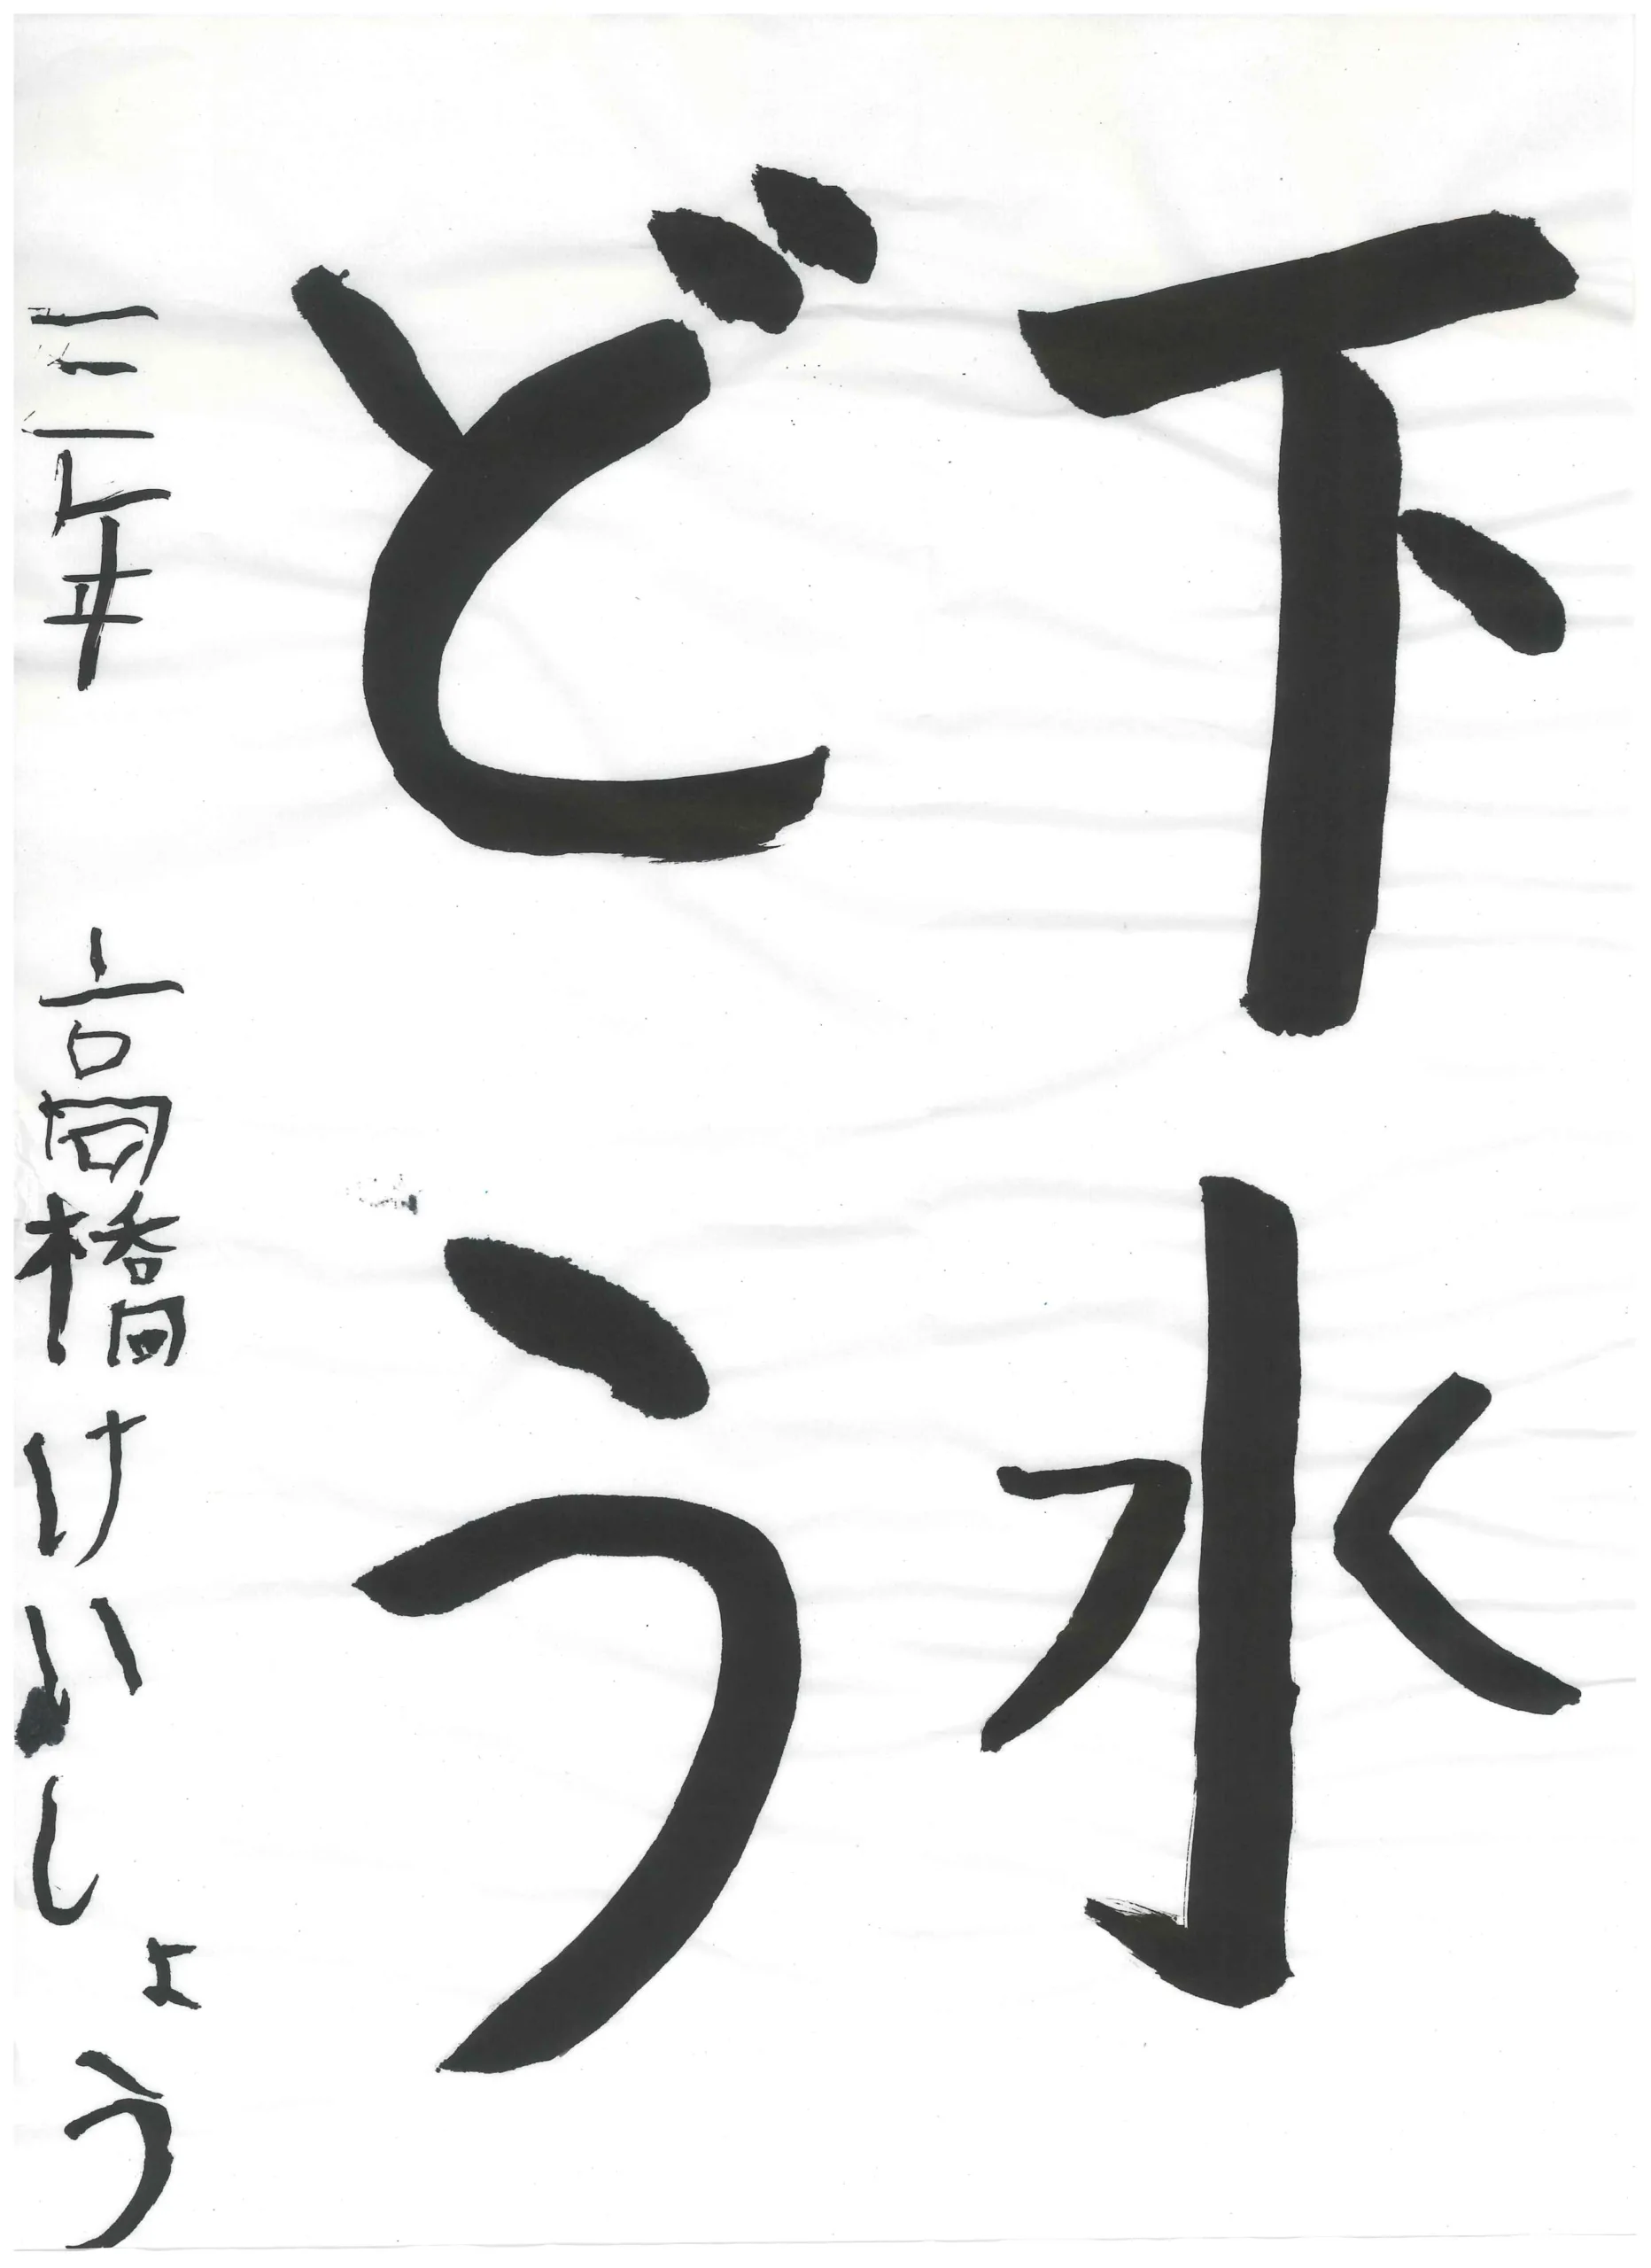 下水
どう
三年 高橋けいしょう